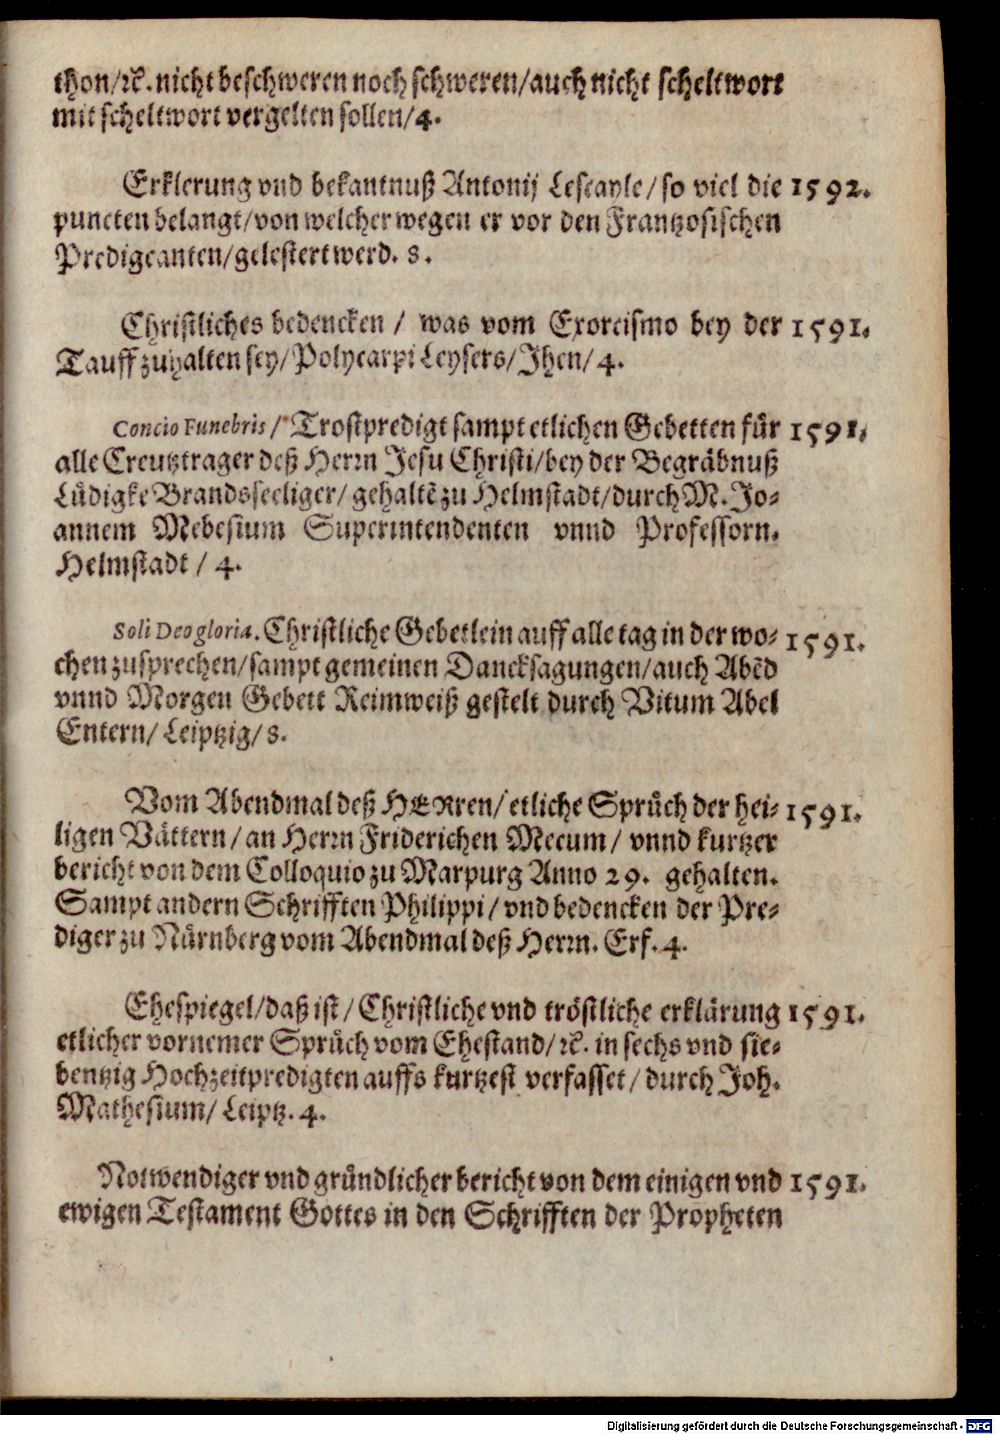 thon/ꝛc. nicht beschweren noch schweren/auch nicht scheltwort
mit scheltwort vergelten sollen/4.
Erklerung vnd bekantnuß Antonij Lescayle/so viel die 1592.
puncten belangt/von welcher wegen er vor den Frantzosischen
Predigcanten/gelestert werd. 8.
Christliches bedencken / was vom Exorcismo bey der 1591.
Tauff zuhalten sey/Polycarpi Leysers/Jhen/4.
Concio Funebris/ Trostpredigt sampt etlichen Gebetten für 1591.
alle Creutztrager deß Herrn Jesu Christi/bey der Begräbnuß
Lüdigke Brandsseeliger/gehaltē zu Helmstadt/durch M. Jo-
annem Mebesium Superintendenten vnnd Professorn.
Helmstadt / 4.
Soli Deo gloria. Christliche Gebetlein auff alle tag in der wo- 1591.
chen zusprechen/sampt gemeinen Dancksagungen/auch Abēd
vnnd Morgen Gebett Reimweiß gestelt durch Vitum Abel
Entern/Leiptzig/8.
Vom Abendmal deß HERren/etliche Sprüch der hei- 1591.
ligen Vättern/an Herrn Friderichen Mecum/ vnnd kurtzer
bericht von dem Colloquio zu Marpurg Anno 29. gehalten.
Sampt andern Schrifften Philippi/vnd bedencken der Pre-
diger zu Nürnberg vom Abendmal deß Herrn. Erf. 4.
Ehespiegel/daß ist/Christliche vnd tröstliche erklärung 1591.
etlicher vornemer Sprüch vom Ehestand/ꝛc. in sechs vnd sie-
bentzig Hochzeitpredigten auffs kurtzest verfasset/durch Joh.
Mathesium/Leiptz. 4.
Notwendiger vnd gründlicher bericht von dem einigen vnd 1591.
ewigen Testament Gottes in den Schrifften der Propheten
Digitalisierung gefördert durch die Deutsche Forschungsgemeinschaft - DFG